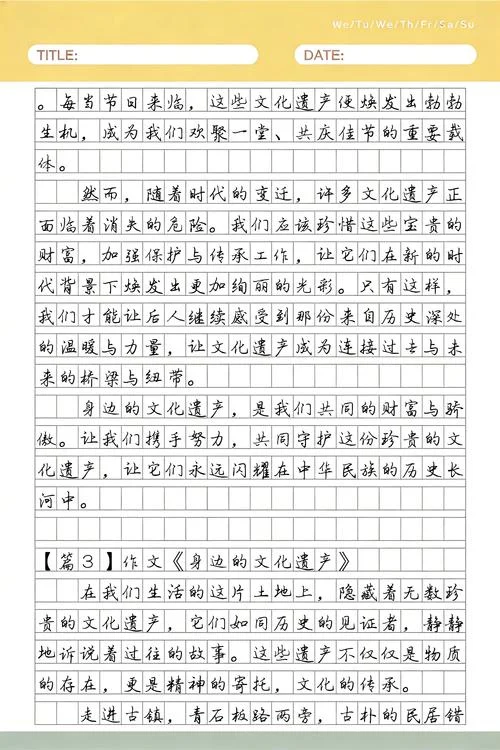 We/Tu/We/Th/Fr/Sa/Su
TITLE: DATE:
。每当节日来临，这些文化遗产便焕发出勃勃
生机，成为我们欢聚一堂、共庆佳节的重要载
体。
然而，随着时代的变迁，许多文化遗产正
面临着消失的危险。我们应该珍惜这些宝贵的
财富，加强保护与传承工作，让它们在新的时
代背景下焕发出更加绚丽的光彩。只有这样，
我们才能让后人继续感受到那份来自历史深处
的温暖与力量，让文化遗产成为连接过去与未
来的桥梁与纽带。
身边的文化遗产，是我们共同的财富与骄
傲。让我们携手努力，共同守护这份珍贵的文
化遗产，让它们永远闪耀在中华民族的历史长
河中。
【篇3】作文《身边的文化遗产》
在我们生活的这片土地上，隐藏着无数珍
贵的文化遗产，它们如同历史的见证者，静静
地诉说着过往的故事。这些遗产不仅仅是物质
的存在，更是精神的寄托，文化的传承。
走进古镇，青石板路两旁，古朴的民居错